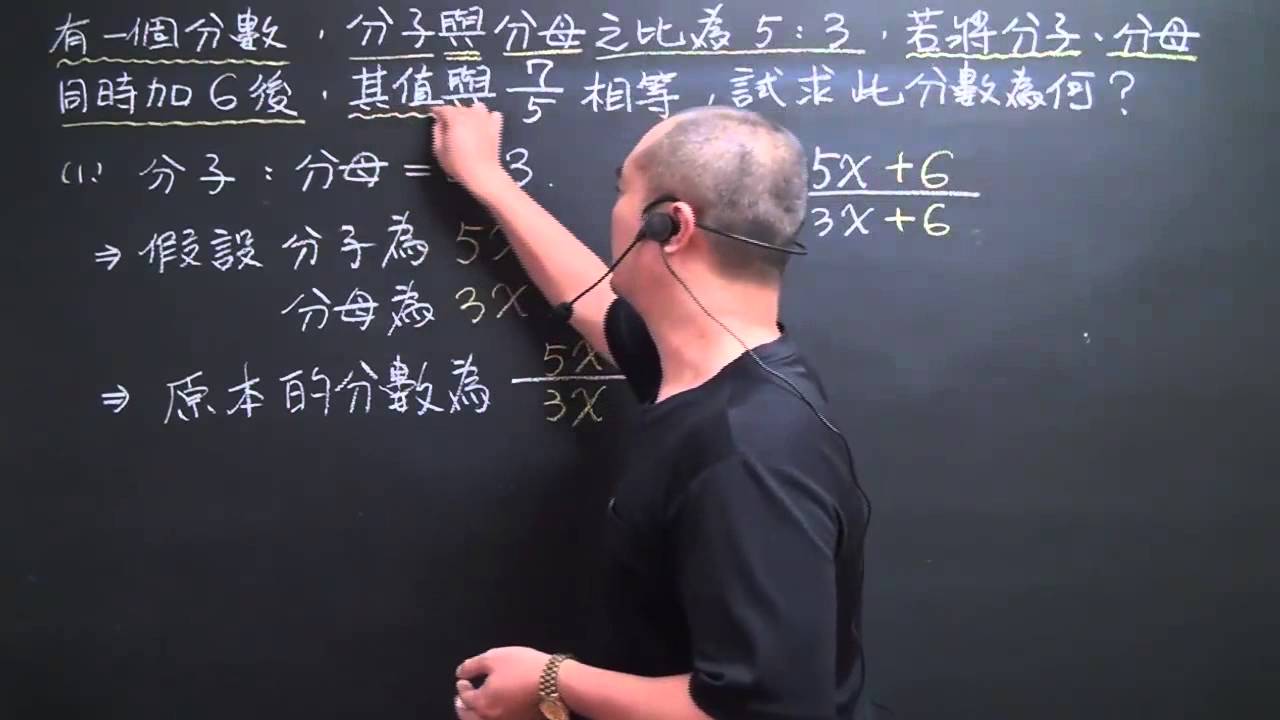 有一個分數，分子與分母之比為 5:3，若將分子、分母
同時加 6 後，其值與 7/5 相等，試求此分數為何？
(1) 分子：分母 = 3.
⇒ 假設 分子為 5X
分母為 3X
⇒ 原本的分數為 5X/3X
5X+6
3X+6